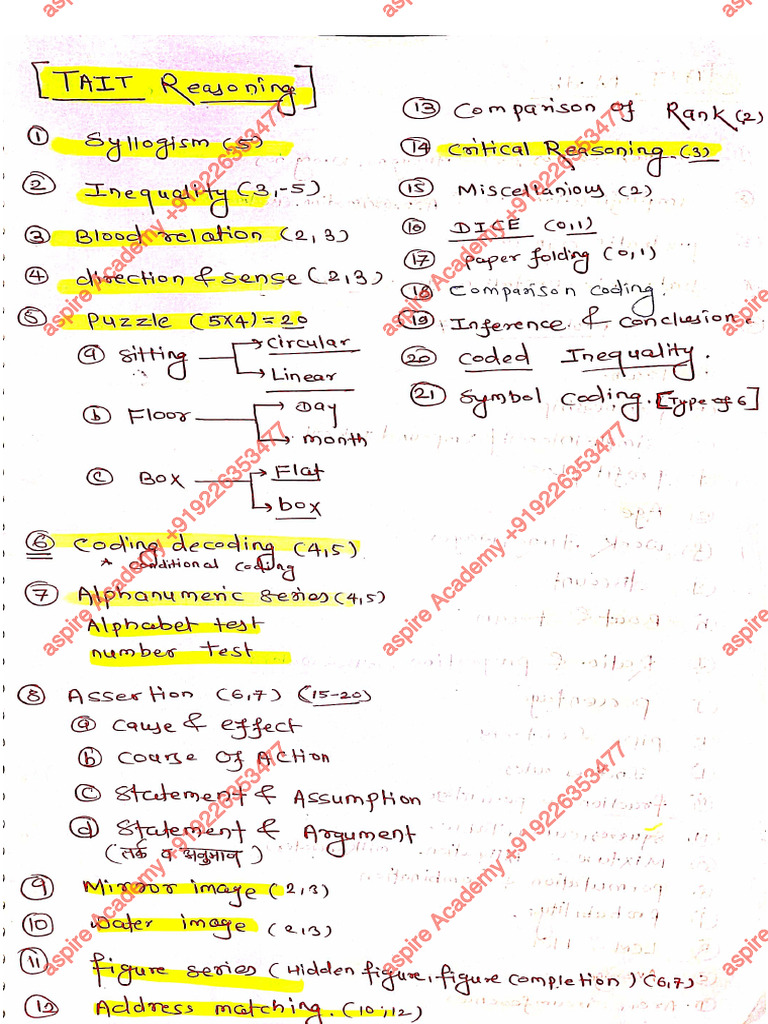 [TAIT Reasoning]
① Syllogism (5)
② Inequality (3,-5)
③ Blood relation (2,3)
④ direction & sense (2,3)
⑤ Puzzle (5x4) = 20
ⓐ Sitting
Circular
Linear
ⓑ Floor
Day
month
ⓒ Box
Flat
box
⑥ Coding decoding (4,5)
* conditional coding
⑦ Alphanumeric series (4,5)
Alphabet test
number test
⑧ Assertion (6,7) (15-20)
ⓐ cause & effect
ⓑ course of Action
ⓒ Statement & Assumption
ⓓ Statement & Argument
(तर्क व अनुमान)
⑨ Mirror image (2,3)
⑩ Water image (2,3)
⑪ figure series (Hidden figure, figure completion) (6,7)
⑫ Address matching. (10,12)
⑬ Comparison of Rank (2)
⑭ Critical Reasoning. (3)
⑮ Miscellanious (2)
⑯ DICE (0,1)
⑰ paper folding (0,1)
⑱ Comparison coding.
⑲ Inference & conclusion.
⑳ coded Inequality.
㉑ Symbol coding. [Type of 6]
aspire Academy +919226353477
aspire Academy +919226353477
aspire Academy +919226353477
aspire Academy +919226353477
aspire Academy +919226353477
aspire Academy +919226353477